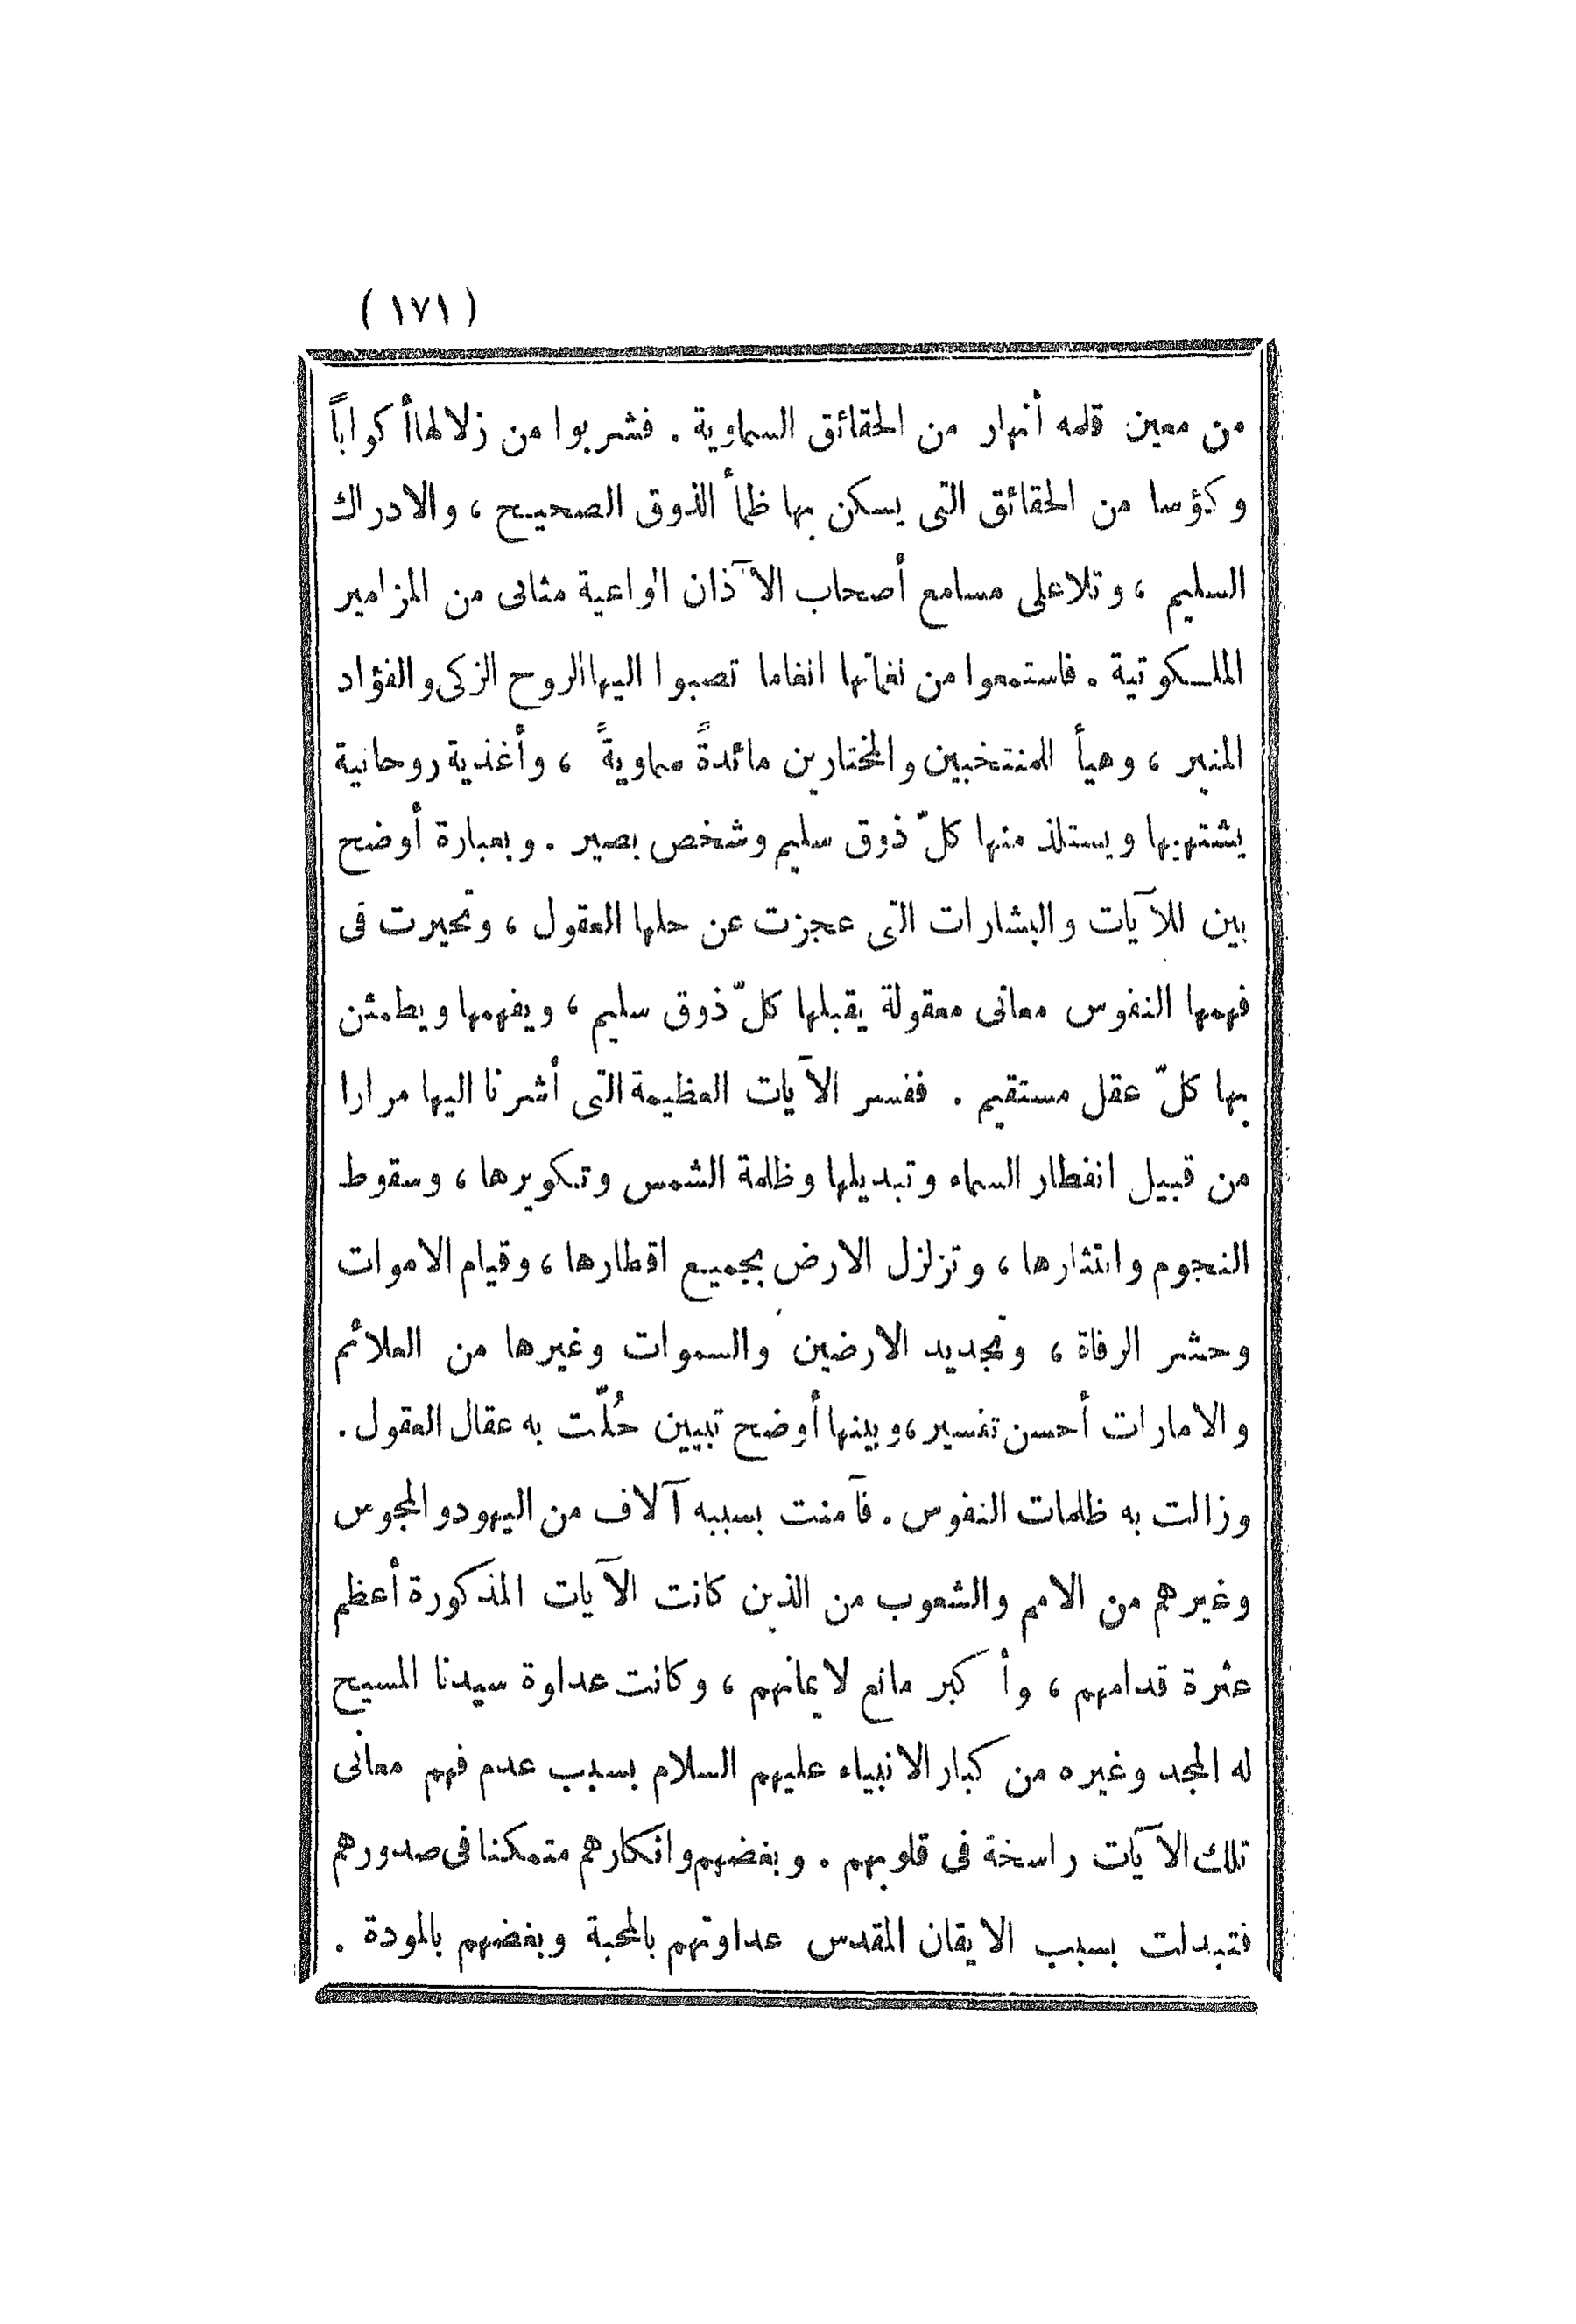 ( ١٧١ )
من معين قلمه أنهار من الحقائق السماوية . فشربوا من زلالها أكواباً
وكؤسا من الحقائق التى يسكن بها ظمأ الذوق الصحيح ، والادراك
السليم ، وتلا على مسامع أصحاب الآذان الواعية مثانى من المزامير
الملكوتية . فاستمعوا من نغماتها انغاما تصبوا اليها الروح الزكى والفؤاد
المنير ، وهيأ للمنتخبين والمختارين مائدةً سماويةً ، وأغذية روحانية
يشتهيها ويستلذ منها كلّ ذوق سليم وشخص بصير . وبعبارة أوضح
بين للآيات والبشارات التى عجزت عن حلها العقول ، وتحيرت فى
فهمها النفوس معانى معقولة يقبلها كلّ ذوق سليم ، ويفهمها ويطمئن
بها كلّ عقل مستقيم . ففسر الآيات العظيمة التى أشرنا اليها مرارا
من قبيل انفطار السماء وتبديلها وظلمة الشمس وتكويرها ، وسقوط
النجوم وانتثارها ، وتزلزل الارض بجميع اقطارها ، وقيام الاموات
وحشر الرفاة ، وتجديد الارضين والسموات وغيرها من العلائم
والامارات أحسن تفسير ، وبينها أوضح تبيين حُلّت به عقال العقول .
وزالت به ظلمات النفوس . فآمنت بسببه آلاف من اليهود والمجوس
وغيرهم من الامم والشعوب من الذين كانت الآيات المذكورة أعظم
عثرة قدامهم ، وأكبر مانع لايمانهم ، وكانت عداوة سيدنا المسيح
له المجد وغيره من كبار الانبياء عليهم السلام بسبب عدم فهم معانى
تلك الآيات راسخة فى قلوبهم . وبغضهم وانكارهم متمكنا فى صدورهم
فتبدلت بسبب الايقان المقدس عداوتهم بالمحبة وبغضهم بالمودة .